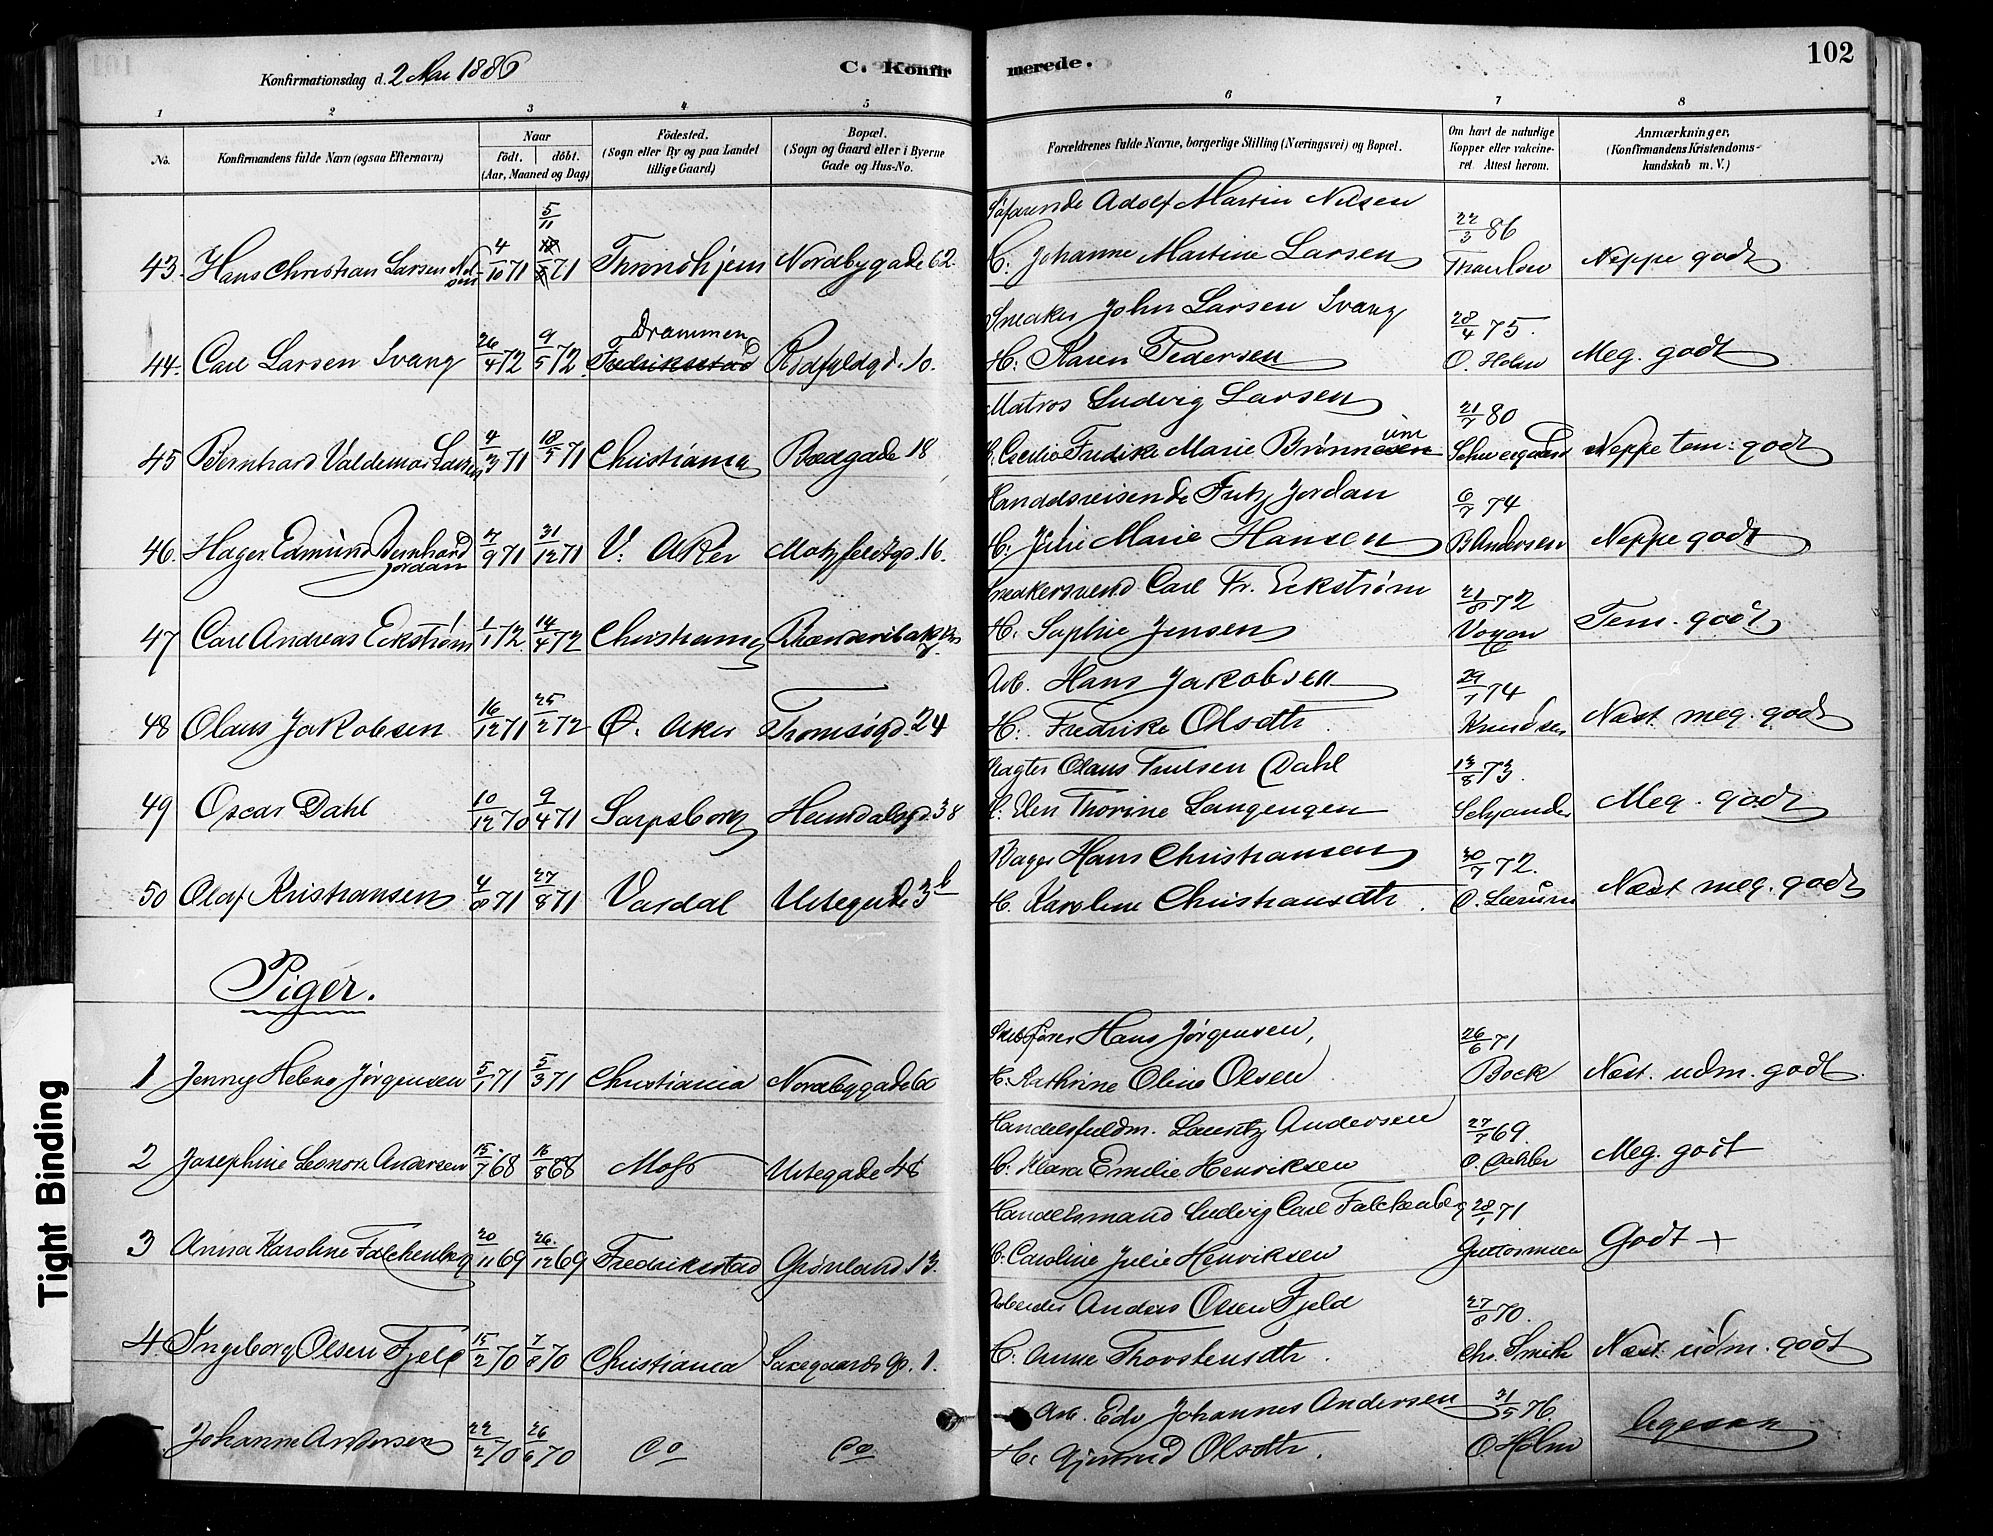 102
Konfirmationsdag d. 2 Mai 1886
C. Konfirmerede.
1 2 3 4 5 6 7 8
No.
Konfirmandens fulde Navn (ogsaa Efternavn)
Naar
født. døbt.
(Aar, Maaned og Dag)
Fødested.
(Sogn eller By og paa Landet
tillige Gaard)
Bopæl.
(Sogn og Gaard eller i Byerne
Gade og Hus-No.
Forældrenes fulde Navne, borgerlige Stilling (Næringsvei) og Bopæl.
Om havt de naturlige
Kopper eller vakcine-
ret. Attest herom.
Anmærkninger,
(Konfirmandens Kristendoms-
kundskab m. V.)
Søfarende Adolf Martin Nilsen 22/3 86
43. Hans Christian Larsen Nilsen 4/10 71 5/11 71 Throndhjem Nordbygade 62. H. Johanne Martine Larsen Thaulow Neppe godt
Sneaker John Larsen Svang 28/4 75.
44. Carl Larsen Svang 26/4 72 9/5 72 Drammen Fredriksstad 10. H. Karen Pedersen O. Holm Meg. godt
Matros Ludvig Larsen 21/7 80
45 Bernhard Valdemar Larsen 4/3 71 18/5 71 Christiania Bredgade 18 H. Cecilie Fredrike Marie Schweigaard Neppe tem: godt
Handelsreisende Fritz Jordan 6/7 74
46. Hager Edmund Bernhard Jordan 7/9 71 31/12 71 V. Aker Motzfeldtgd. 16. H. Julie Marie Hansen B Andersen Neppe godt
Sneakersvend Carl Fr. Eckstrøm 21/8 72
47 Carl Andreas Eckstrøm 1/1 72 14/4 72 Christiania H. Sophie Jensen Tem. godt
Arb. Hans Jakobsen 29/7 74
48 Olaus Jakobsen 16/12 71 25/2 72 Ø. Aker Tromsøgd. 24 H. Fredrike Olsdtr. Knudsen Næst meg. godt
Olaus Truelsen Dahl 13/8 73.
49 Oscar Dahl 10/12 70 9/4 71 Sarpsborg Heimdalsgd. 38 H. Elen Thorine Langengen Selyander Meg. godt
Bager Hans Christiansen 30/7 72.
50 Olaf Kristiansen 4/8 71 27/8 71 Vardal Urtegade 3b H. Karoline Christiansdtr. O. Lærum Næst meg. godt
Piger.
Skibsfører Hans Jørgensen, 26/6 71
1 Jenny Helene Jørgensen 5/1 71 5/3 71 Christiania Nordbygade 60 H. Kathrine Oline Olsen Bock Næst. udm. godt.
Handelsfuldm. Lauritz Andersen 27/7 69.
2 Josephine Leonora Andersen 15/7 68 16/8 68 Moss Urtegade 48 H. Klara Emilie Henriksen O. Dahler Meg. godt
Handelsmand Ludvig Carl Falchenberg 28/1 71
3 Anna Karoline Falchenberg 20/11 69 26/12 69 Fredrikstad Grønland 13. H. Caroline Julie Henriksen Guttormsen Godt +
Arbeider Anders Olsen Fjeld 27/8 70.
4. Ingeborg Olsen Fjeld 15/2 70 7/8 70 Christiania Saxegaardsgd. 1. H. Anne Thorstensdtr. Chr. Smith Næst. udm. godt
Arb. Edv Johannes Andersen 31/5 76.
Johanne Andersen 22/2 70 26/6 70 do do H. Gjertrud Olsdtr. O. Holm Ligesaa
Tight Binding